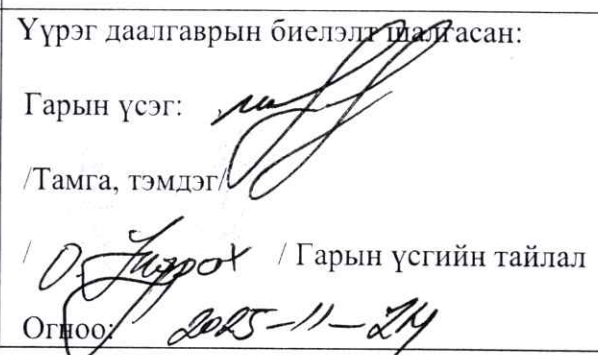 Үүрэг даалгаврын биелэлт шалгасан:
Гарын үсэг:
/Тамга, тэмдэг/
/ О. / Гарын үсгийн тайлал
Огноо: 2025-11-24